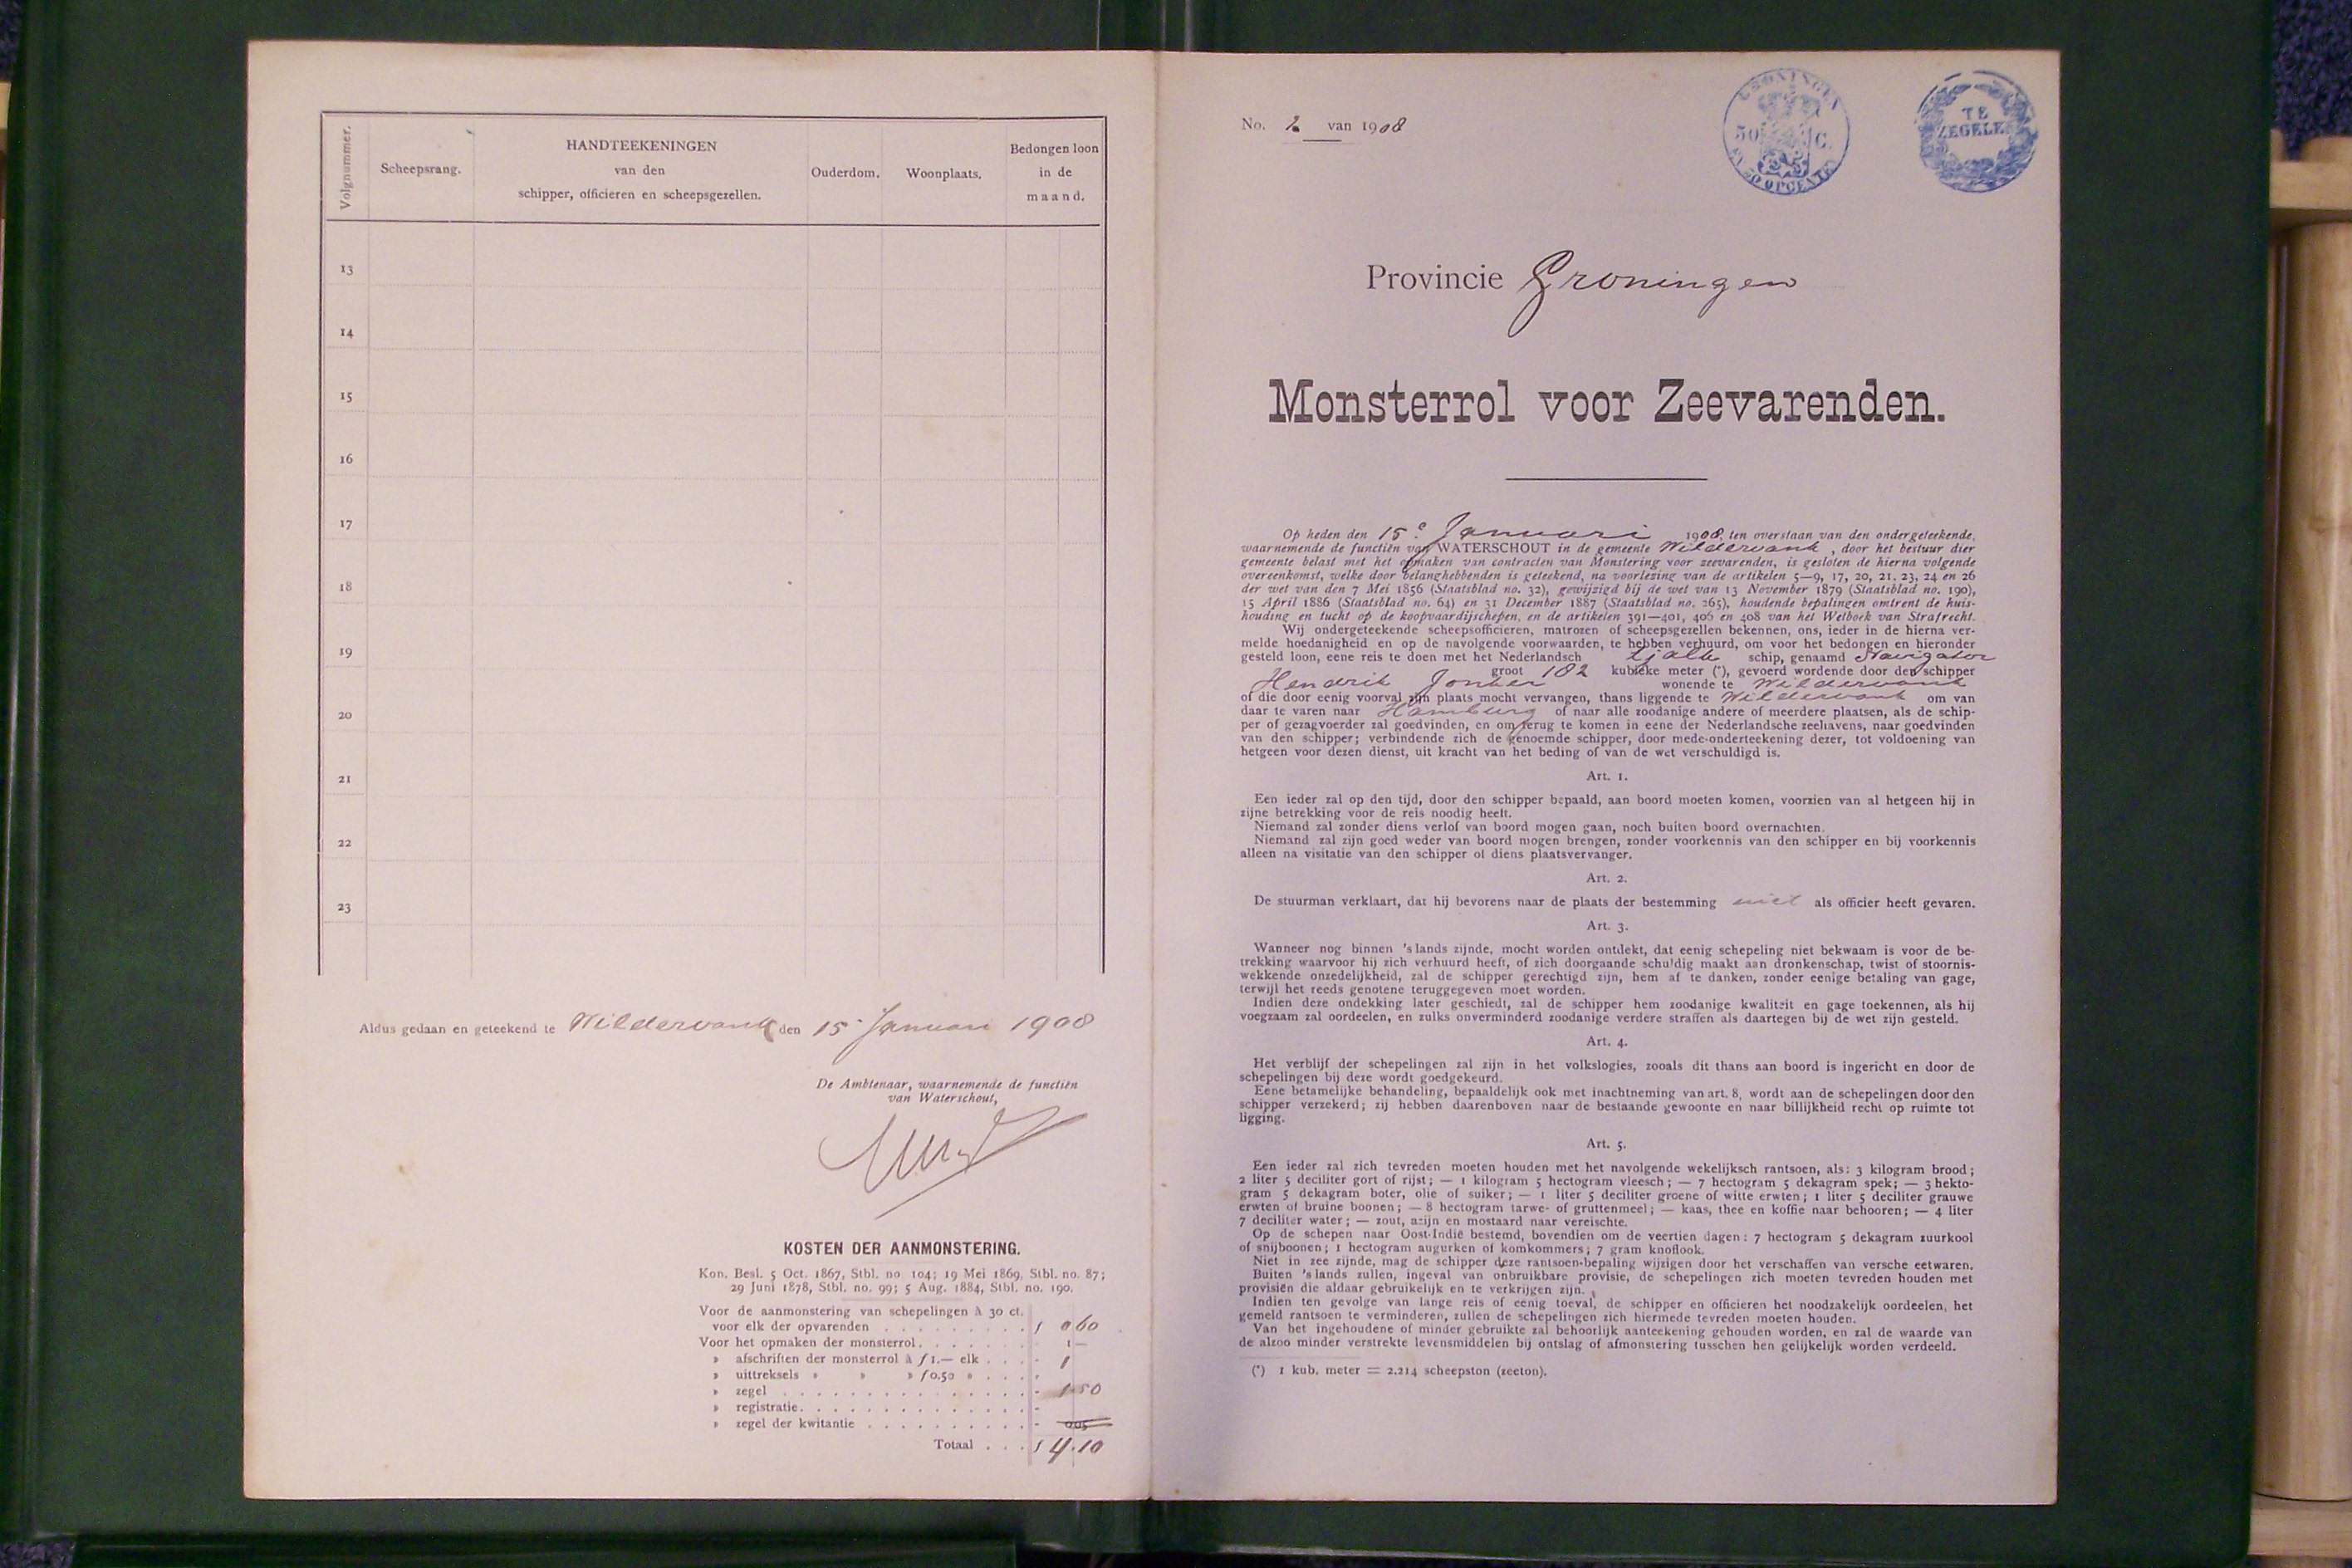 Volgnummer.
Scheepsrang.
HANDTEEKENINGEN
van den
schipper, officieren en scheepsgezellen.
Ouderdom.
Woonplaats.
Bedongen loon
in de
maand.
13
14
15
16
17
18
19
20
21
22
23
Aldus gedaan en geteekend te Wildervank den 15 Januari 1908
De Ambtenaar, waarnemende de functiën
van Waterschout,
KOSTEN DER AANMONSTERING.
Kon. Besl. 5 Oct. 1867, Stbl. no. 104; 19 Mei 1869, Stbl. no. 87;
29 Juni 1878, Stbl. no. 99; 5 Aug. 1884, Stbl. no. 190.
Voor de aanmonstering van schepelingen à 30 ct.
voor elk der opvarenden . . . . . . . . . ƒ 0 60
Voor het opmaken der monsterrol . . . . . . . - 1 —
» afschriften der monsterrol à ƒ 1.— elk . . . - 1
» uittreksels » » » ƒ 0.50 » . . . -
» zegel . . . . . . . . . . . . . . . - 1.50
» registratie . . . . . . . . . . . . . -
» zegel der kwitantie . . . . . . . . . . - 0.05
Totaal . . . ƒ 4.10
No. 2 van 1908
GRONINGEN
50 C.
EN 50 OPCENTEN
TE
ZEGELEN
Provincie Groningen
Monsterrol voor Zeevarenden.
Op heden den 15e Januari 1908, ten overstaan van den ondergeteekende,
waarnemende de functiën van WATERSCHOUT in de gemeente Wildervank, door het bestuur dier
gemeente belast met het opmaken van contracten van Monstering voor zeevarenden, is gesloten de hierna volgende
overeenkomst, welke door belanghebbenden is geteekend, na voorlezing van de artikelen 5—9, 17, 20, 21. 23, 24 en 26
der wet van den 7 Mei 1856 (Staatsblad no. 32), gewijzigd bij de wet van 13 November 1879 (Staatsblad no. 190),
15 April 1886 (Staatsblad no. 64) en 31 December 1887 (Staatsblad no. 265), houdende bepalingen omtrent de huis-
houding en tucht op de koopvaardijschepen, en de artikelen 391—401, 406 en 408 van het Wetboek van Strafrecht.
Wij ondergeteekende scheepsofficieren, matrozen of scheepsgezellen bekennen, ons, ieder in de hierna ver-
melde hoedanigheid en op de navolgende voorwaarden, te hebben verhuurd, om voor het bedongen en hieronder
gesteld loon, eene reis te doen met het Nederlandsch tjalk schip, genaamd Navigator
groot 182 kubieke meter (*), gevoerd wordende door den schipper
Hendrik Jonker wonende te Wildervank
of die door eenig voorval zijn plaats mocht vervangen, thans liggende te Wildervank om van
daar te varen naar Hamburg of naar alle zoodanige andere of meerdere plaatsen, als de schip-
per of gezagvoerder zal goedvinden, en om terug te komen in eene der Nederlandsche zeehavens, naar goedvinden
van den schipper; verbindende zich de genoemde schipper, door mede-onderteekening dezer, tot voldoening van
hetgeen voor dezen dienst, uit kracht van het beding of van de wet verschuldigd is.
Art. 1.
Een ieder zal op den tijd, door den schipper bepaald, aan boord moeten komen, voorzien van al hetgeen hij in
zijne betrekking voor de reis noodig heeft.
Niemand zal zonder diens verlof van boord mogen gaan, noch buiten boord overnachten.
Niemand zal zijn goed weder van boord mogen brengen, zonder voorkennis van den schipper en bij voorkennis
alleen na visitatie van den schipper of diens plaatsvervanger.
Art. 2.
De stuurman verklaart, dat hij bevorens naar de plaats der bestemming niet als officier heeft gevaren.
Art. 3.
Wanneer nog binnen 's lands zijnde, mocht worden ontdekt, dat eenig schepeling niet bekwaam is voor de be-
trekking waarvoor hij zich verhuurd heeft, of zich doorgaande schuldig maakt aan dronkenschap, twist of stoornis-
wekkende onzedelijkheid, zal de schipper gerechtigd zijn, hem af te danken, zonder eenige betaling van gage,
terwijl het reeds genotene teruggegeven moet worden.
Indien deze ondekking later geschiedt, zal de schipper hem zoodanige kwaliteit en gage toekennen, als hij
voegzaam zal oordeelen, en zulks onverminderd zoodanige verdere straffen als daartegen bij de wet zijn gesteld.
Art. 4.
Het verblijf der schepelingen zal zijn in het volkslogies, zooals dit thans aan boord is ingericht en door de
schepelingen bij deze wordt goedgekeurd.
Eene betamelijke behandeling, bepaaldelijk ook met inachtneming van art. 8, wordt aan de schepelingen door den
schipper verzekerd; zij hebben daarenboven naar de bestaande gewoonte en naar billijkheid recht op ruimte tot
ligging.
Art. 5.
Een ieder zal zich tevreden moeten houden met het navolgende wekelijksch rantsoen, als: 3 kilogram brood;
2 liter 5 deciliter gort of rijst; — 1 kilogram 5 hectogram vleesch; — 7 hectogram 5 dekagram spek; — 3 hekto-
gram 5 dekagram boter, olie of suiker; — 1 liter 5 deciliter groene of witte erwten; 1 liter 5 deciliter grauwe
erwten of bruine boonen; — 8 hectogram tarwe- of gruttenmeel; — kaas, thee en koffie naar behooren; — 4 liter
7 deciliter water; — zout, azijn en mostaard naar vereischte.
Op de schepen naar Oost-Indië bestemd, bovendien om de veertien dagen: 7 hectogram 5 dekagram zuurkool
of snijboonen; 1 hectogram augurken of komkommers; 7 gram knoflook.
Niet in zee zijnde, mag de schipper deze rantsoen-bepaling wijzigen door het verschaffen van versche eetwaren.
Buiten 's lands zullen, ingeval van onbruikbare provisie, de schepelingen zich moeten tevreden houden met
provisiën die aldaar gebruikelijk en te verkrijgen zijn.
Indien ten gevolge van lange reis of eenig toeval, de schipper en officieren het noodzakelijk oordeelen, het
gemeld rantsoen te verminderen, zullen de schepelingen zich hiermede tevreden moeten houden.
Van het ingehoudene of minder gebruikte zal behoorlijk aanteekening gehouden worden, en zal de waarde van
de alzoo minder verstrekte levensmiddelen bij ontslag of afmonstering tusschen hen gelijkelijk worden verdeeld.
(*) 1 kub. meter = 2.214 scheepston (zeeton).